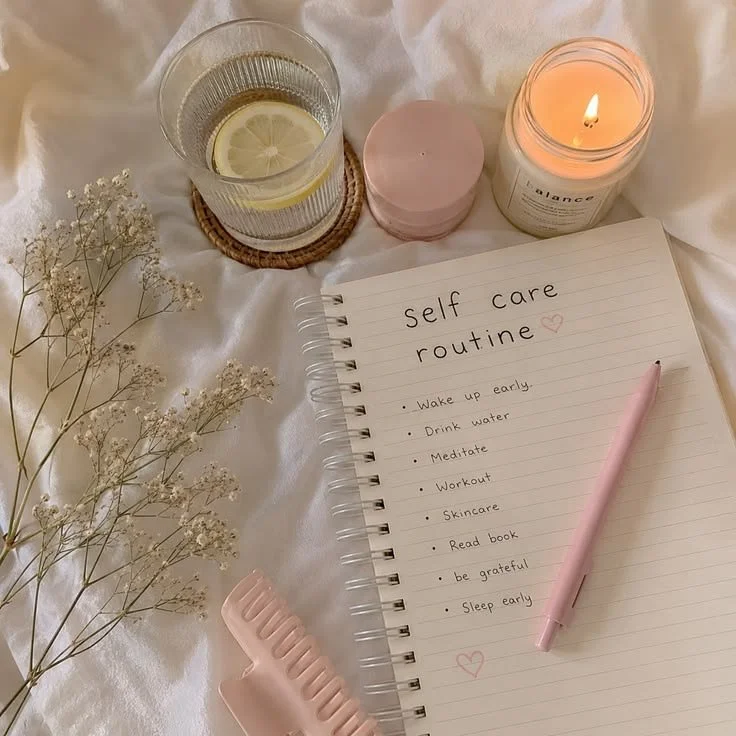 balance
self care
routine
• Wake up early.
• Drink water
• Meditate
• Workout
• Skincare
• Read book
• be grateful
• Sleep early